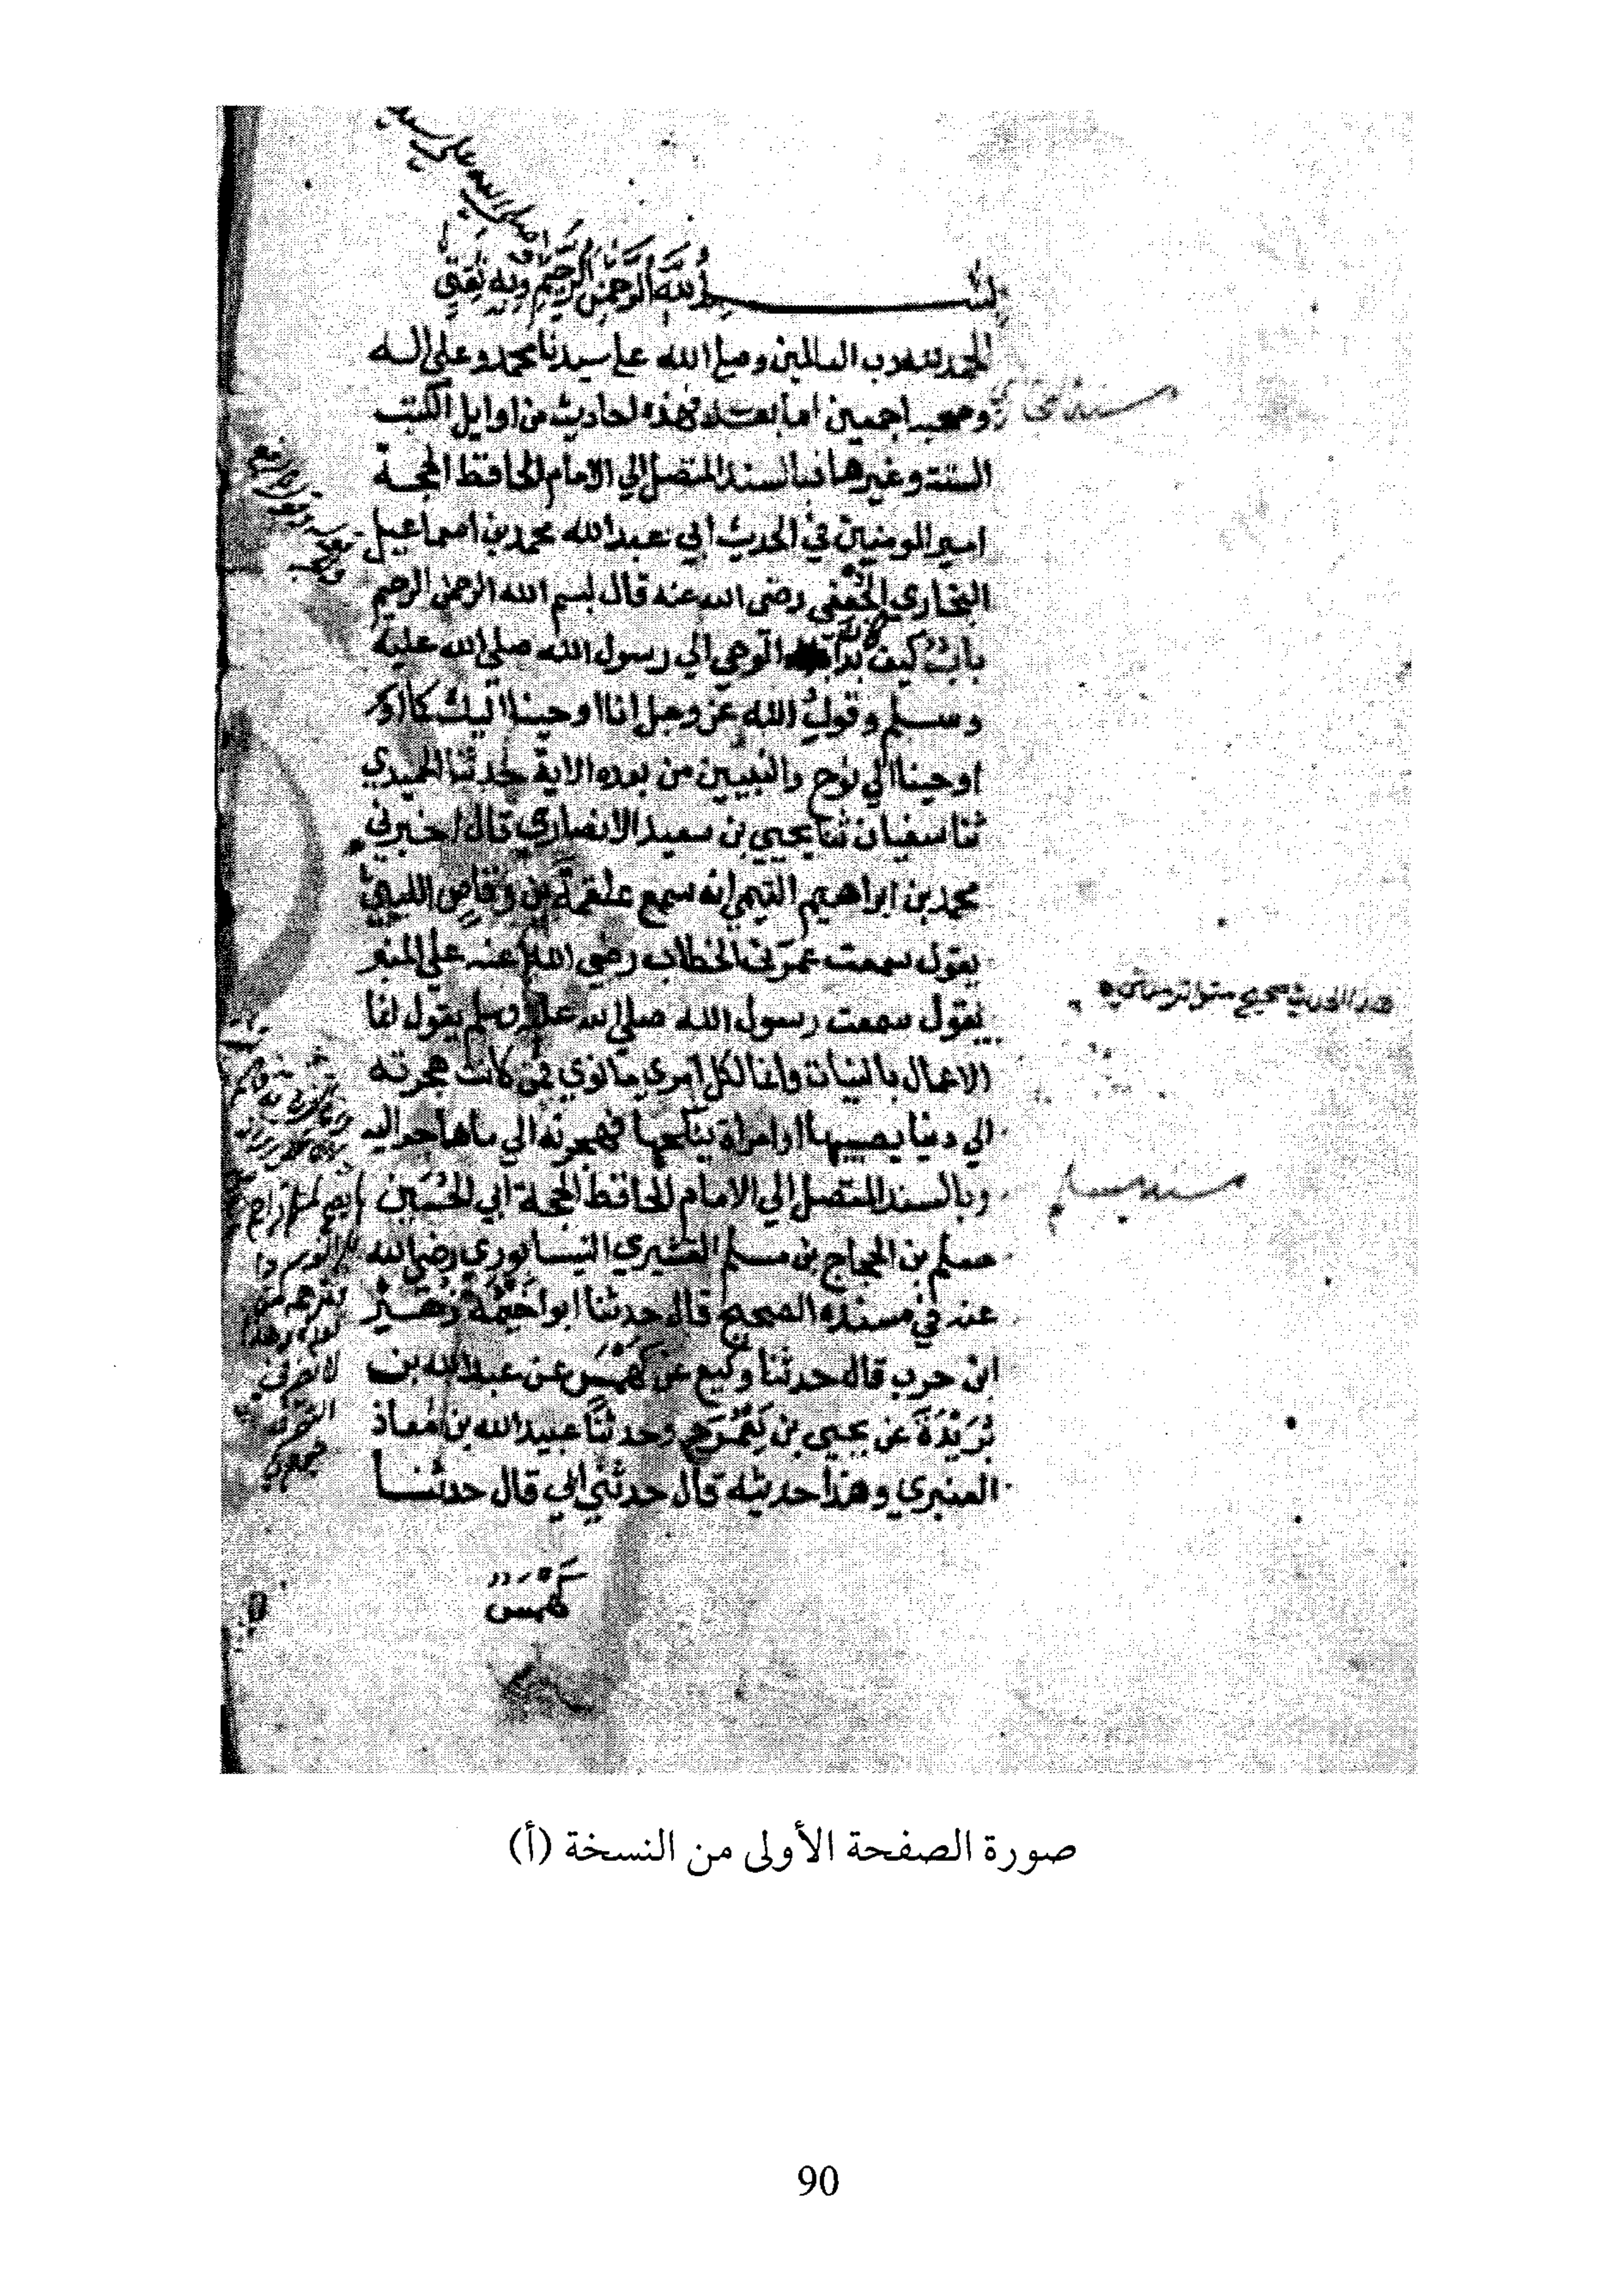 صلى الله على سيدنا
بسم الله الرحمن الرحيم وبه ثقتي
الحمد لله رب العالمين وصلى الله على سيدنا محمد وعلى اله
وصحبه اجمعين اما بعد فهذه احاديث من اوايل الكتب
مسند البخاري
الستة وغيرها فبالسند المتصل الي الامام الحافظ الحجة
امير المومنين في الحديث ابي عبد الله محمد بن اسماعيل
البخاري الجعفي رضي الله عنه قال بسم الله الرحمن الرحيم
باب كيف كان بدأ الوحي الي رسول الله صلى الله عليه
وسلم وقول الله عز وجل انا اوحينا اليك كما
اوحينا الي نوح والنبيين من بعده الاية حدثنا الحميدي
ثنا سفيان ثنا يحيى بن سعيد الانصاري قال اخبرني
محمد بن ابراهيم التيمي انه سمع علقمة بن وقاص الليثي
يقول سمعت عمر بن الخطاب رضي الله عنه علي المنبر
يقول سمعت رسول الله صلى الله عليه وسلم يقول انما
هذا الحديث صحيح متواتر
الاعمال بالنيات وانما لكل امرئ ما نوي فمن كانت هجرته
الي دنيا يصيبها او امراة ينكحها فهجرته الي ما هاجر اليه
وبالسند المتصل الي الامام الحافظ الحجة ابي الحسين
مسند مسلم
مسلم بن الحجاج بن مسلم القشيري النيسابوري رضي الله
عنه في مسنده الصحيح قال حدثنا ابو خيثمة زهير
ابن حرب قال حدثنا وكيع عن كهمس عن عبد الله بن
بريدة عن يحيى بن يعمر ح وحدثنا عبيد الله بن معاذ
العنبري وهذا حديثه قال حدثني ابي قال حدثنا
كهمس
صورة الصفحة الأولى من النسخة (أ)
90